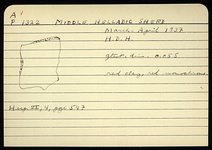 A'
P 1372 MIDDLE HELLADIC SHERD
March-April 1937
H.D.H.
Gtst. dim. 0.055
red clay, red
Hesp VI, 4, pge 547